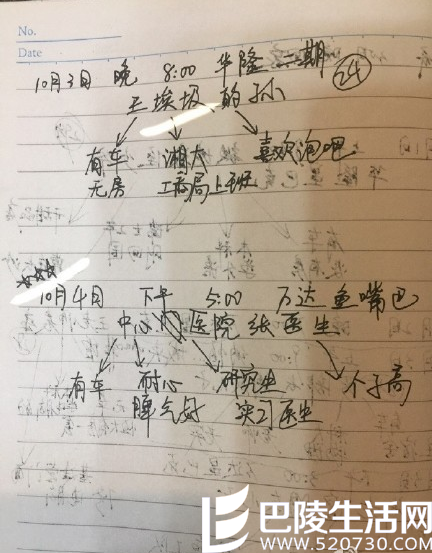 No.
Date
10月3日 晚 8:00 华隆二期 24
王埃圾的孙
有车 湘大 喜欢泡吧
无房 工商局上班
10月4日 下午 5:00 万达 鱼嘴巴
中心医院 张医生
有车 耐心 研究生 个子高
脾气好 实习医生
巴陵生活网
www.520730.com